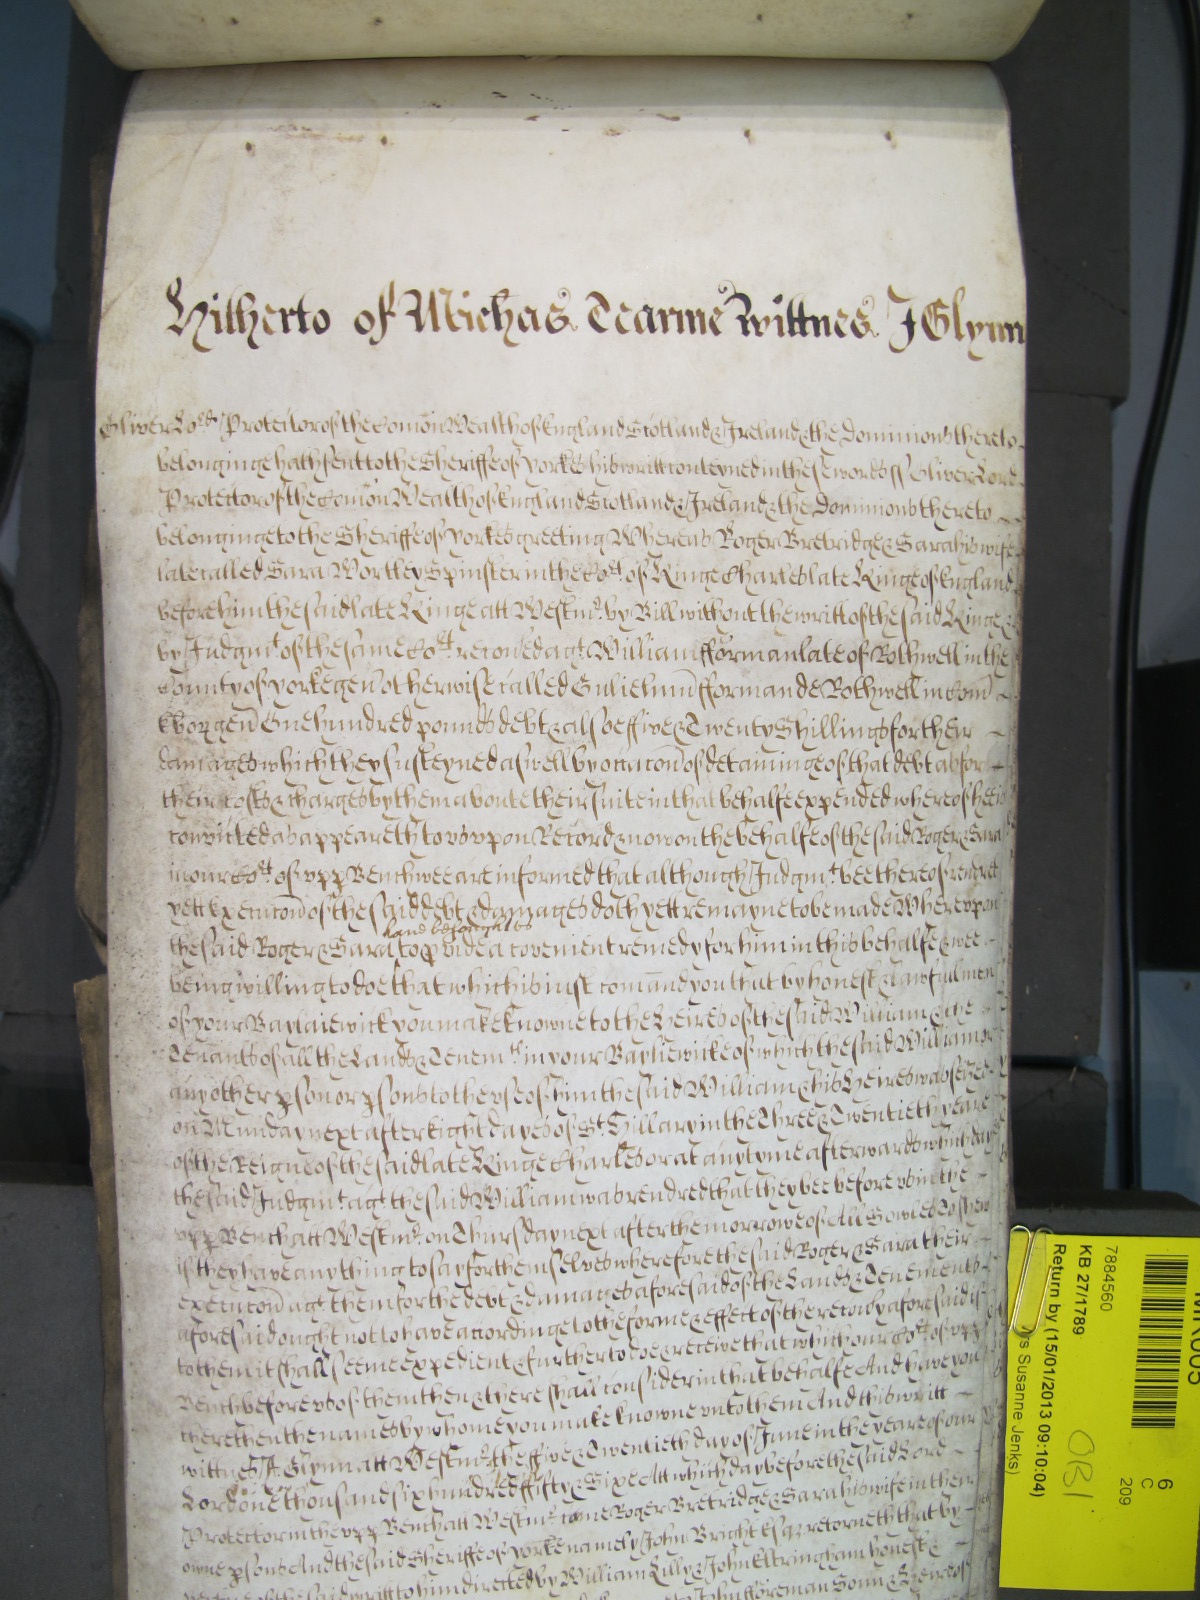 Hitherto of Michas Tearme Wittnes J Glynn
Oliver Lord Protector of the Comon Wealth of England Scotland & Ireland & the Dominions thereto
belonginge hath sent to the Sheriffe of Yorke his writt conteyned in these words ss Oliver Lord
Protector of the Comon Wealth of England Scotland & Ireland & the Dominions thereto
belonginge to the Sheriffe of Yorke greeting Whereas Roger Bretridge & Sara his wife
late called Sara Wortley Spinster in the Cort of Kinge Charles late Kinge of England
before him the said late Kinge att Westmr by Bill without the writt of the said Kinge &
by Judgmt of the same Cort recoved agt William fforman late of Rothwell in the
County of Yorke gen otherwise called Gulielmu fforman de Rothwell in Com
Ebor gen One hundred pounds debt & alsoe ffive & Twenty Shillings for their
damages which they susteyned aswell by occacon of detaininge of that debt as for
their costs & charges by them aboute their suite in that behalfe expended whereof hee is
convicted as appeareth to us upon Record & now on the behalfe of the said Roger & Sara
in our Cort of upp Bench wee are informed that although Judgmt bee thereof rendred
yett Execucon of the said debt & damages doth yett remayne to be made Whereupon
the said Roger & Sara have besought us to pvide a covenient remedy for him in this behalfe & wee
being willing to doe that which is just comand you that by honest & lawfull men
of your Baylaiewick you make knowne to the Heires of the said William & the
Tenants of all the Lands & Tenemts in your Bayliewicke of which the said William or
any other pson or psons to the use of him the said William & his Heires was seized
on Munday next after Eight dayes of St Hillary in the Three & Twentieth yeare
of the Reigne of the said late Kinge Charles or at any tyme afterwards which day
the said Judgmt agt the said William was rendred that they bee before us in the
upp Bench att Westmr on Thursday next after the morrowe of All Sowles to shew
if they have any thing to say for themselves wherefore the said Roger & Sara their
execucon agt them for the debt & damages aforesaid of the Lands & Tenements
aforesaid ought not to have accordinge to the forme & effect of the recovly aforesaid if
to them it shall seeme expedient & further to doe & receive that which our Cort of upp
Bench before us of them then & there shall consider in that behalfe And have you
there then the names by whome you make knowne unto them And this writt
wittnes J. Glynn att Westmr the ffive & Twentieth day of June in the yeare of our
Lord one thousand six hundred ffifty & Sixe Att which day before the said Lord
Protector in the upp Bench att Westmr came Roger Bretridge & Sara his wife in their
owne psons And the said Sheriffe of Yorke namely John Bright Esq retorneth that by
of the said writt to him directed by William Lilly & John Eltringham honest &
John fforeman Sonn & Heire of
7884560
KB 27/1789
Return by (15/01/2013 09:10:04)
s Susanne Jenks)
6
C
209
OBI